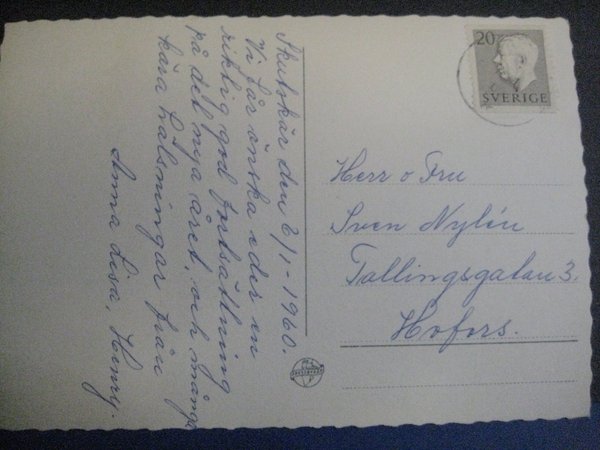 Skutskär den 2/1-1960.
Vi får önska eder en
riktig god fortsättning
på det nya året, och många
kära hälsningar från
Anna Lisa, Henry.
20
SVERIGE
Herr o Fru
Sven Nylén
Tallingsgatan 3.
Hofors.